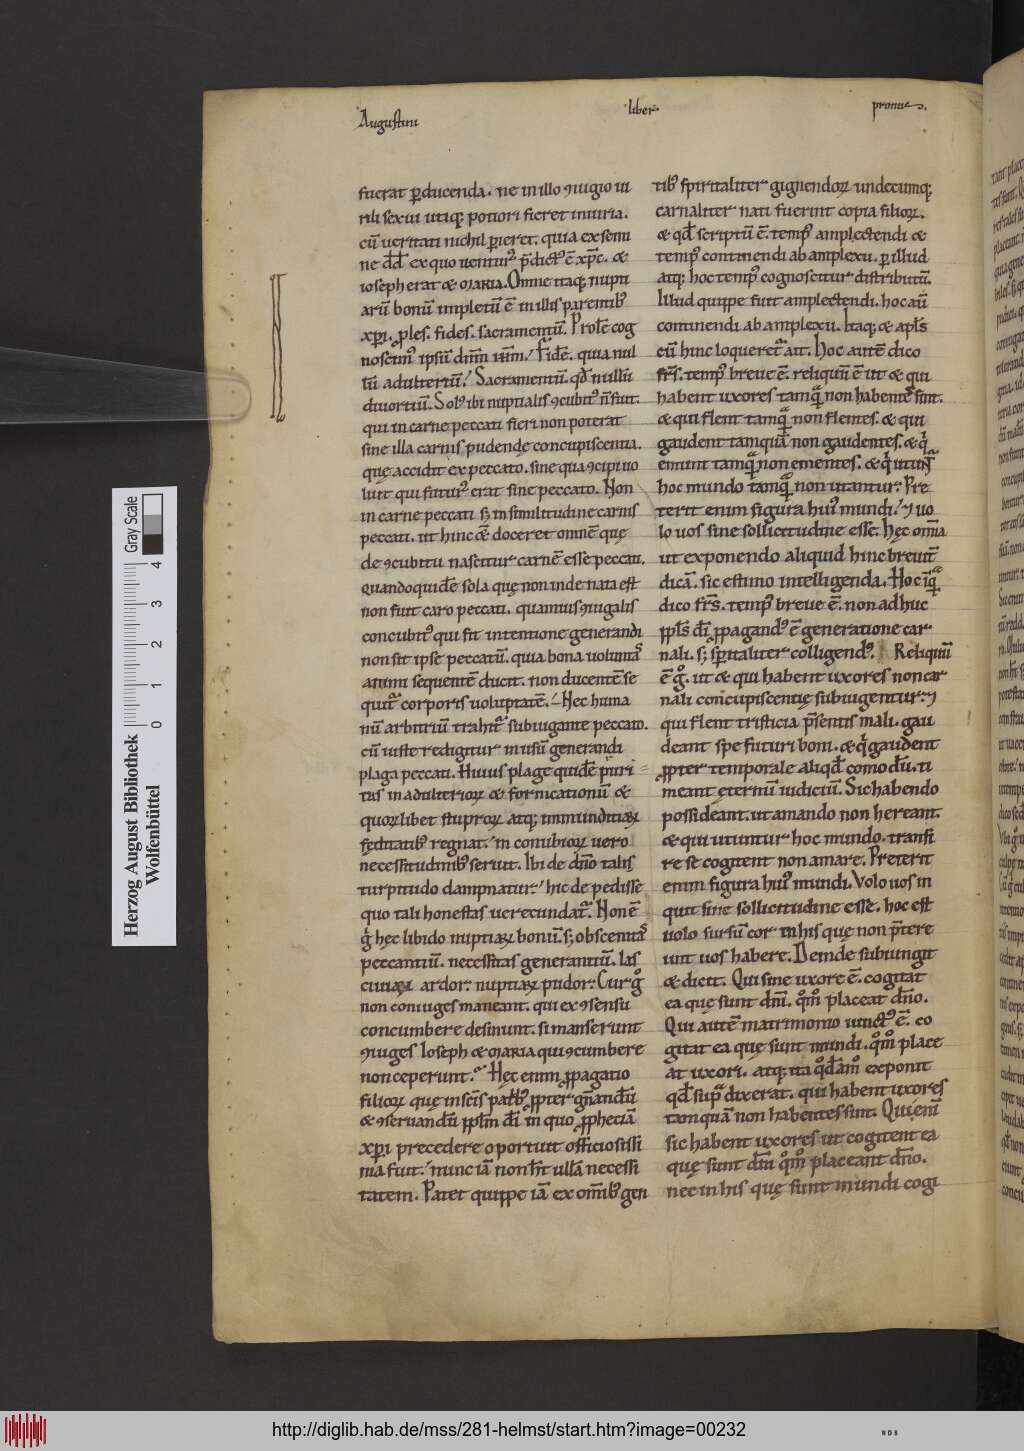 Augustini liber primus.
fuerat ꝑducenda. ne in illo ꝯiugio ui
rili sexui utiq; potiori fieret iniuria.
cū ueritati nichil ꝑieret. quia ex semi
ne dd̄ ex quo uentur᷒ p̄dict᷒ ē xp̄c. &
ioseph erat & maria. Omne itaq; nupti
arū bonū impletū ē in illis parentib᷒
xp̄i. ꝓles. fides. sacramentū. Prolē cog
noscim᷒ ipsū dn̄m ih̄m. Fidē. quia nul
lū adulteriū. Sacramentū. qd̄ nullū
diuortiū. Sol᷒ ibi nuptialis ꝯcubit᷒ n̄ fuit.
qui in carne peccati fieri non poterat
sine illa carnis pudendę concupiscentia.
quę accidit ex peccato. sine qua ꝯcipi uo
luit qui futur᷒ erat sine peccato. Non
in carne peccati s; in similitudine carnis
peccati. ut hinc &̄ doceret omnē quę
de ꝯcubitu nascitur carnē esse peccati.
quandoquidē sola quę non inde nata est
non fuit caro peccati. quamuis ꝯiugalis
concubit᷒ qui fit intentione generandi
non sit ipse peccatū. quia bona uoluntas
animi sequentē ducit. non ducentē se
quit᷑ corporis uoluptatē. Nec huma
nū arbitriū trahit᷑ subiugante peccato.
cū iuste redigitur in usū generandi
plaga peccati. Huius plagę quidē pruri
tus in adulterioꝝ & fornicationū &
quoꝝlibet stuproꝝ atq; immunditiaꝝ
fęditatib᷒ regnat. in conubioꝝ uero
necessitudinib᷒ seruit. Ibi de dn̄o talis
turpitudo dampnatur. hic de pedisse
quo tali honestas uerecundat᷑. Non ē
g̊ hęc libido nuptiaꝝ bonū. s; obscenitas
peccantiū. necessitas generantiū. las
ciuiaꝝ ardor. nuptiaꝝ pudor. Cur g̊
non coniuges maneant. qui ex ꝯsensu
concumbere desinunt. si manserunt
ꝯiuges Ioseph & maria qui ꝯcumbere
non ceperunt. Hęc enim ꝓpagatio
filioꝝ quę in sc̄is patrib᷒ ꝓpter gn̄andū
& ꝯseruandū ppl̄m dī in quo ꝓphetiā
xp̄i precedere oportuit officiosissi
ma fuit. nunc iā non h̄t ullā necessi
tatem. Patet quippe iā ex om̄ib᷒ gen
tib᷒ spiritaliter gignendoꝝ undecumq;
carnaliter nati fuerint copia filioꝝ.
& qd̄ scriptū ē. temp᷒ amplectendi &
temp᷒ continendi ab amplexu. ꝑ illud
atq; hoc temp᷒ cognoscitur distributū.
Illud quippe fuit amplectendi. hoc aū
continendi ab amplexu. Itaq; & apl̄s
cū hinc loqueret᷑ ait. Hoc autē dico
fr̄s. temp᷒ breue ē. reliquū ē ut & qui
habent uxores tamqᷓ non habentes sint.
& qui flent tamqᷓ non flentes. & qui
gaudent tamquā non gaudentes. & q̇
emunt tamqᷓ non ementes. & q̇ utunt᷑
hoc mundo tamqᷓ non utantur. Pre
terit enim figura hui᷒ mundi. uo
lo uos sine sollicitudine esse. Hęc om̄ia
ut exponendo aliquid hinc breuit᷑
dicā. sic estimo intelligenda. Hoc inqᷓ
dico fr̄s. temp᷒ breue ē. non adhuc
ppl̄s dī ꝓpagand᷒ ē generatione car
nali. s; sp̄italiter colligend᷒. Reliquū
ē g̊. ut & qui habent uxores non car
nali concupiscentię subiugentur. &
qui flent tristicia p̄sentis mali. gau
deant spe futuri boni. & q̇ gaudent
ꝓpter temporale aliqd̄ comodū. ti
meant eternū iudiciū. Sic habendo
possideant. ut amando non hereant.
& qui utuntur hoc mundo. transi
re se cogitent non amare. Preterit
enim figura hui᷒ mundi. Volo uos in
quit sine sollicitudine esse. hoc est
uolo sursū cor in his quę non p̄tere
unt uos habere. Deinde subiungit
& dicit. Qui sine uxore ē. cogitat
ea quę sunt dn̄i. qm̊o placeat dn̄o.
Qui autē matrimonio iunct᷒ ē. co
gitat ea quę sunt mundi. qm̊o place
at uxori. atq; ita qd̊ammo exponit
qd̄ supᷓ dixerat. qui habent uxores
tamquā non habentes sint. Qui enī
sic habent uxores ut cogitent ea
quę sunt dn̄i qm̊o placeant dn̄o.
nec in his quę sunt mundi cogi
Herzog August Bibliothek
Wolfenbüttel
0 1 2 3 4 Gray Scale
http://diglib.hab.de/mss/281-helmst/start.htm?image=00232
WDB